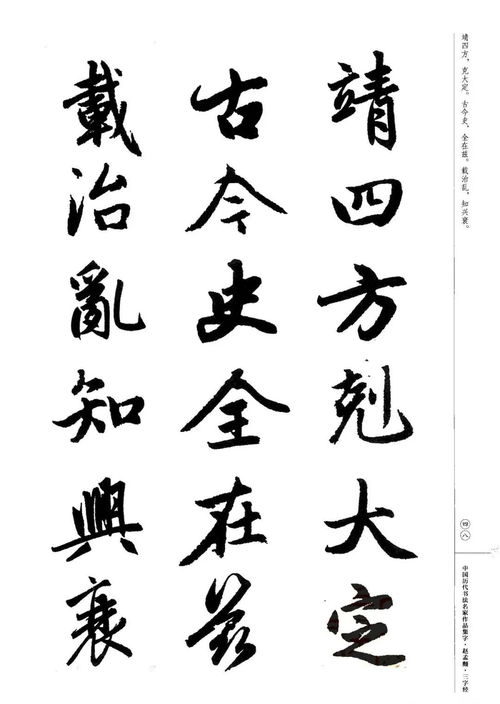 靖四方,克大定。古今史,全在兹。载治乱,知兴衰。
靖四方剋大定
古今史全在兹
載治亂知興衰
四八
中国历代书法名家作品集字·赵孟頫·三字经